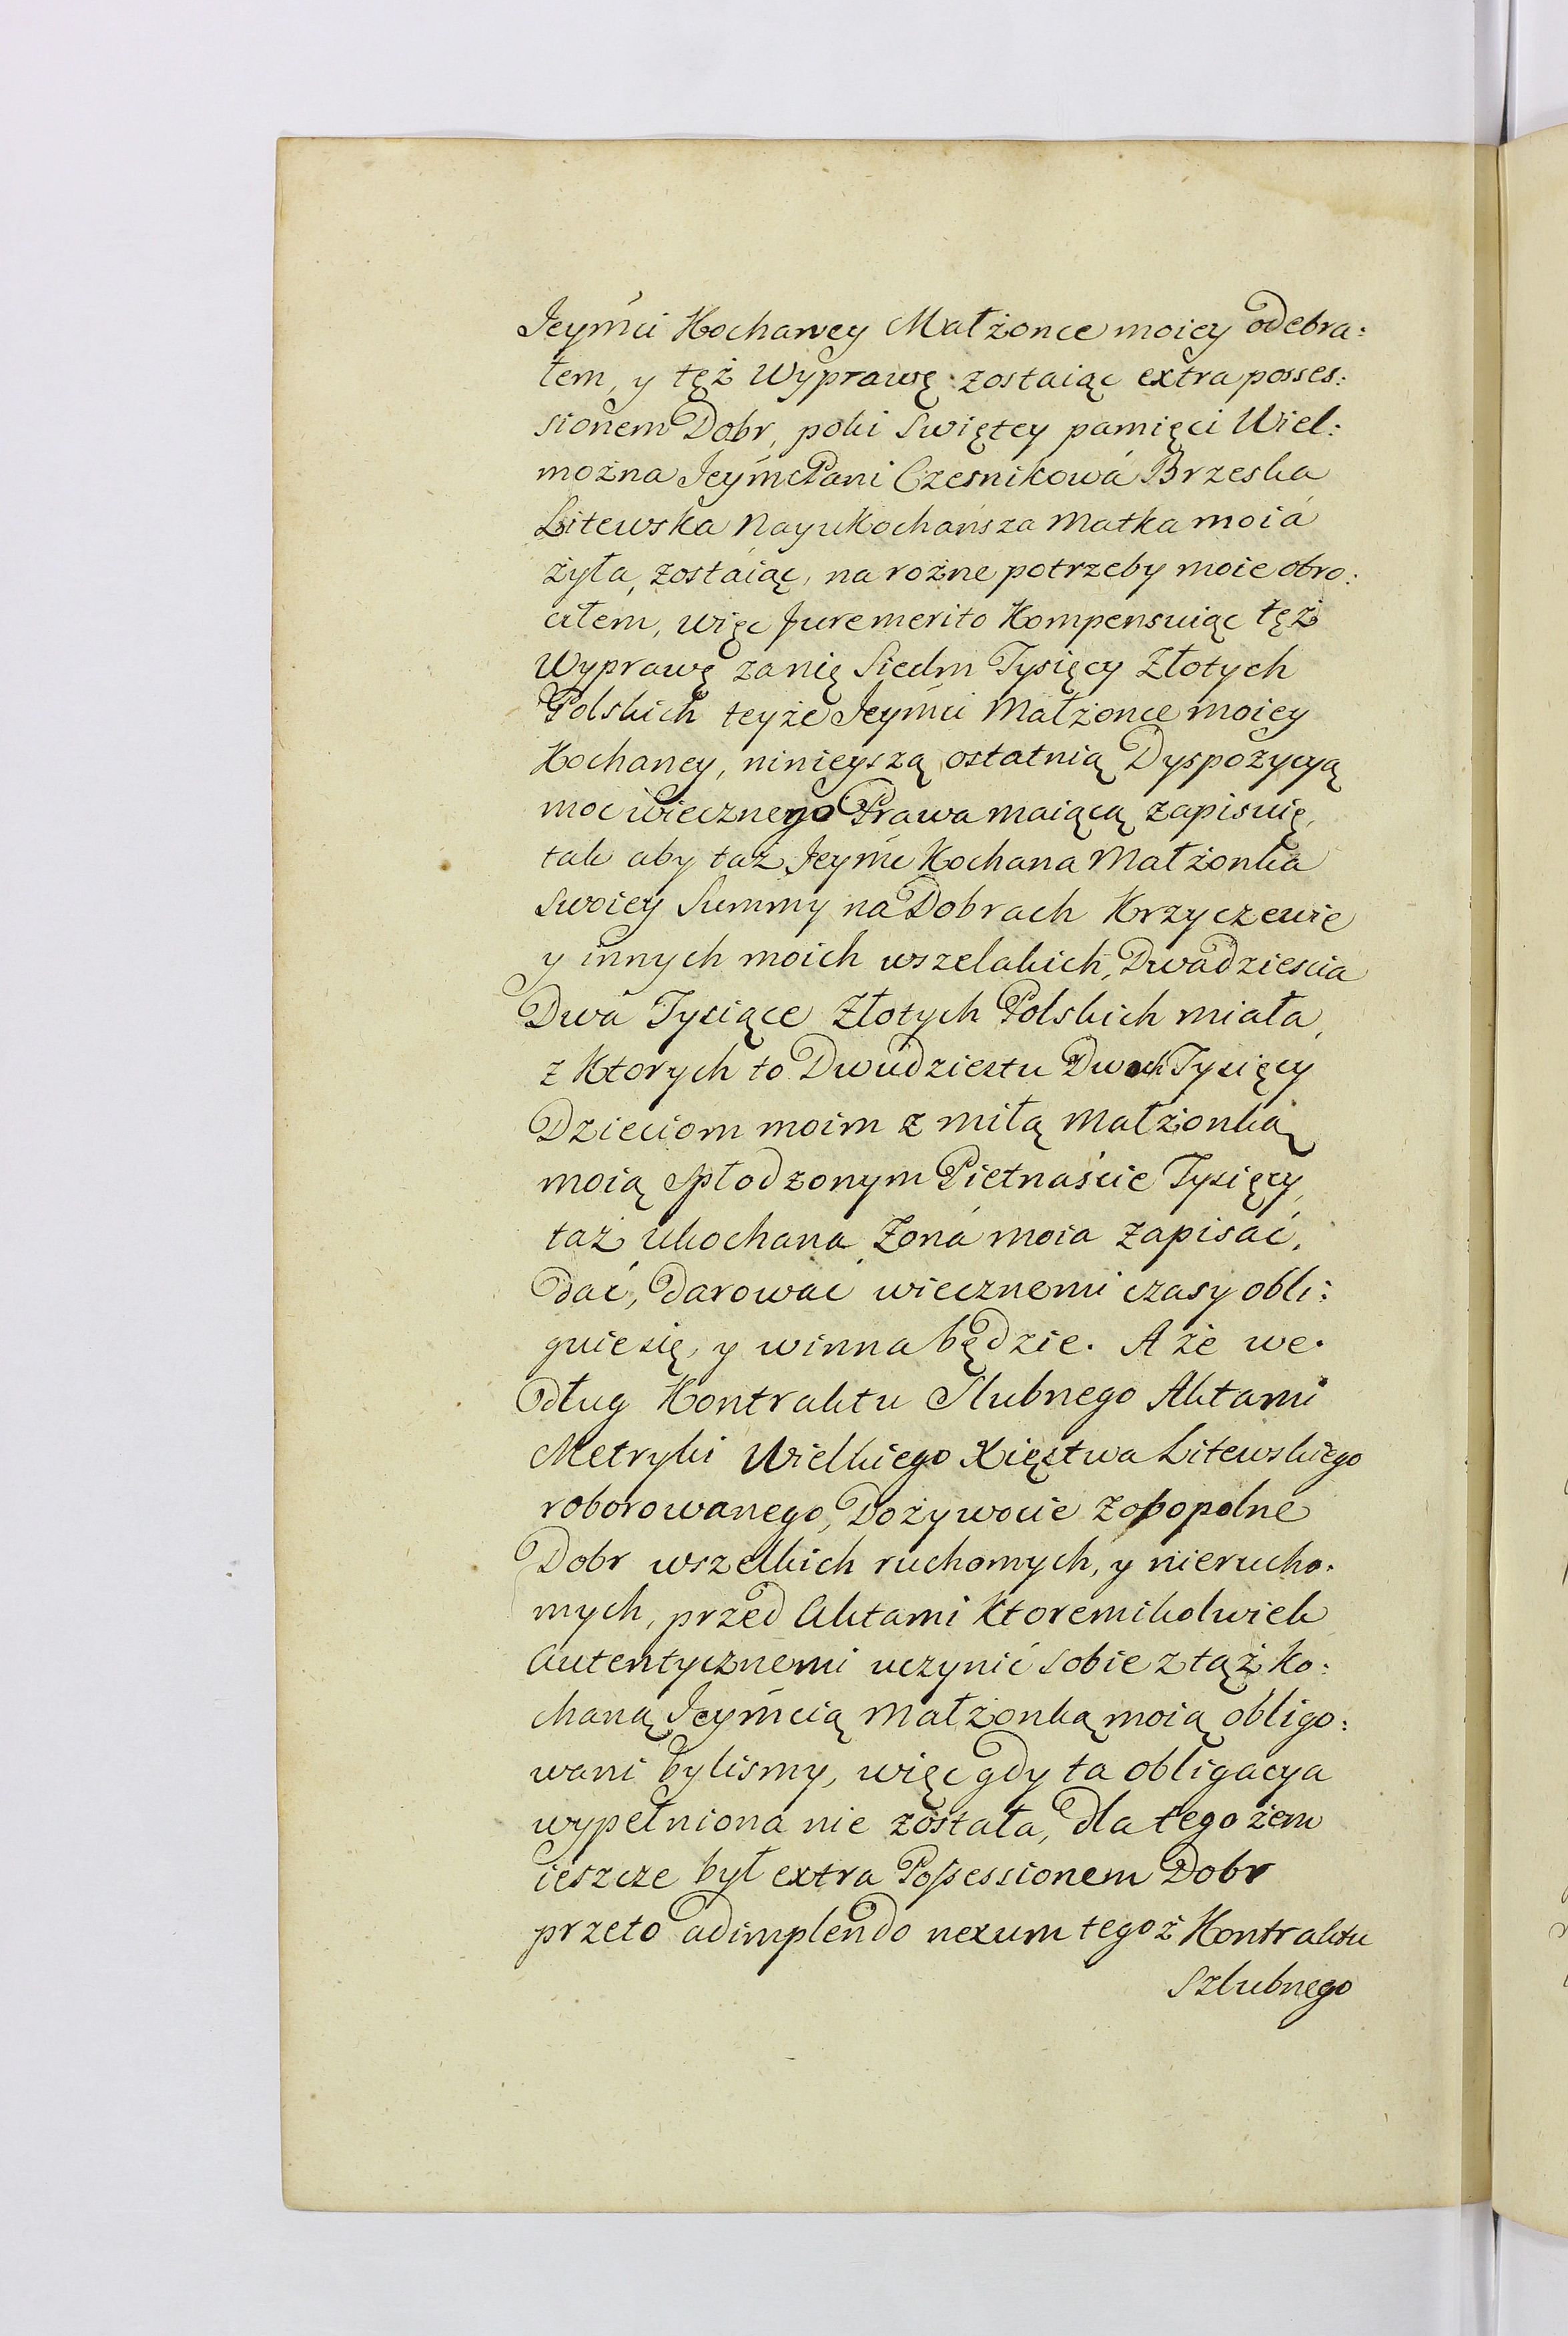 Jeymći Kochaney Małżonce moiey odebra:
łem, y tęż Wyprawę zostaiąc extra posses:
sionem Dobr, poki Swiętey pamięci Wiel:
można JeymćPani Czesnikowá Brzeska
Litewska Nayukochańsza Matka moiá
żyła, zostáiąc, na rożne potrzeby moie obro:
ciłem, więc Jure merito Kompensuiąc tęż
Wyprawę za nię Siedm Tysięcy Złotych
Polskich teyże Jeymći Małżonce moiey
Kochaney, ninieyszą ostatnią Dyspozycyą
moc wiecznego Prawa maiącą zapisuię,
tak aby taż Jeymć Kochana Małżonka
swoiey Summy na Dobrach Krzyczewie
y innych moich wszelakich, Dwadziescia
Dwa Tysiące Złotych Polskich miała,
z Ktorych to Dwudziestu Dwoch Tysięcy
Dzieciom moim z miłą Małżonką
moią spłodzonym Pietnaście Tysięcy,
taż Ukochana Zoná moia zapisać,
dać, darować wiecznemi czasy obli:
guie się, y winna będzie. A że we.
dług Kontraktu Slubnego Aktami
Metryki Wielkiego Xięstwa Litewskiego
roborowanego, Dożywocie zobopolne
Dobr wszelkich ruchomych, y nierucho.
mych, przed Aktami Ktoremikolwiek
Autentycznemi uczynić sobie z tąż Ko:
chaną Jeymćią Małżonką moią obligo:
wani bylismy, więc gdy ta obligacya
wypełniona nie została, dla tego żem
ieszcze był extra Possessionem Dobr
przeto adimplendo nexum tegoż Kontraktu
Szlubnego